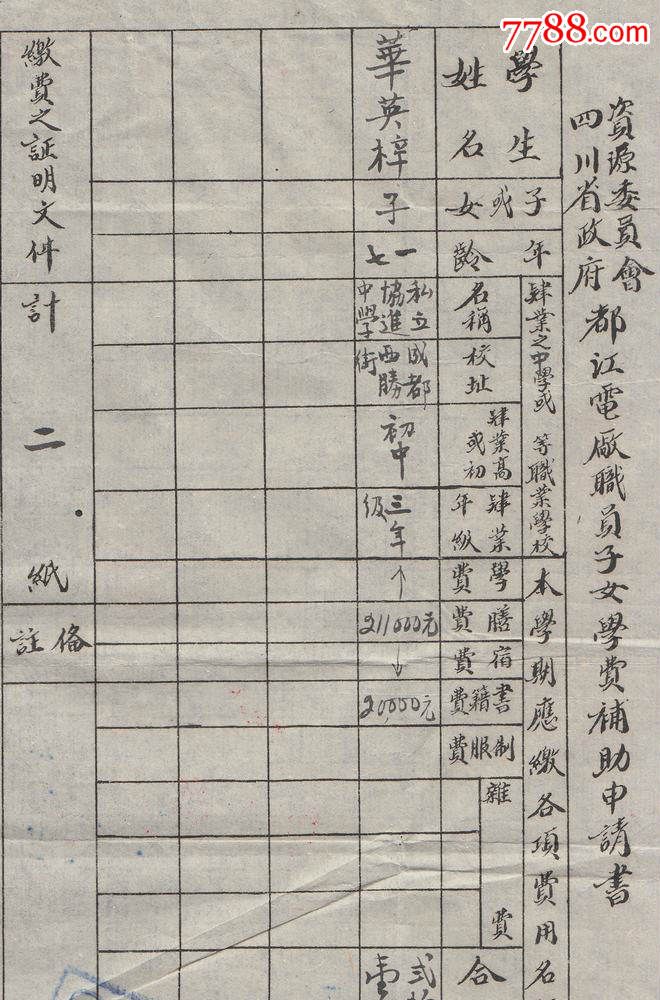 7788.com
資源委員會
四川省政府
都江電廠職員子女學費補助申請書
學生姓名
子或女
年齡
肄業之中學或 等職業學校
名稱
校址
肄業高或初
肄業年級
本學期應繳各項費用名
學費
膳費
宿費
書籍費
制服費
雜費
合
華英梓
子
一七
私立成都協進中學
西勝街
初中
三年級
↑
211000元
↓
20000元
弍
壹
繳費之証明文件
計二紙
備註